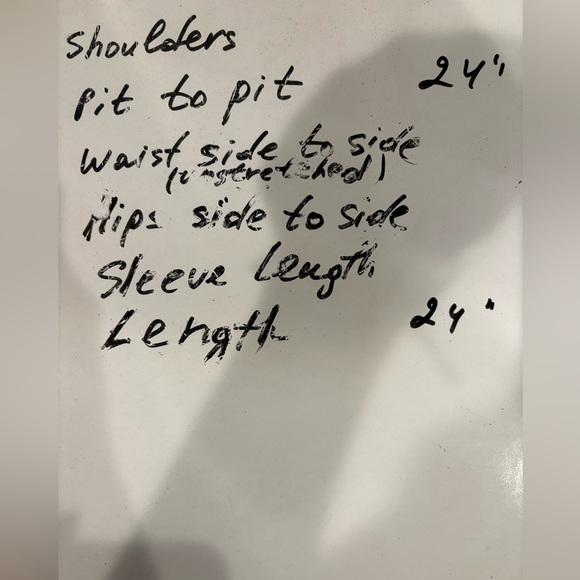 Shoulders
Pit to pit 24"
Waist side to side
(unstretched)
Hips side to side
Sleeve Length
Length 24"